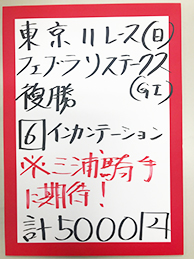 東京11レース(日)
フェブラリステークス
複勝 (GI)
6 インカンテーション
※三浦騎手
に期待!
計5000円